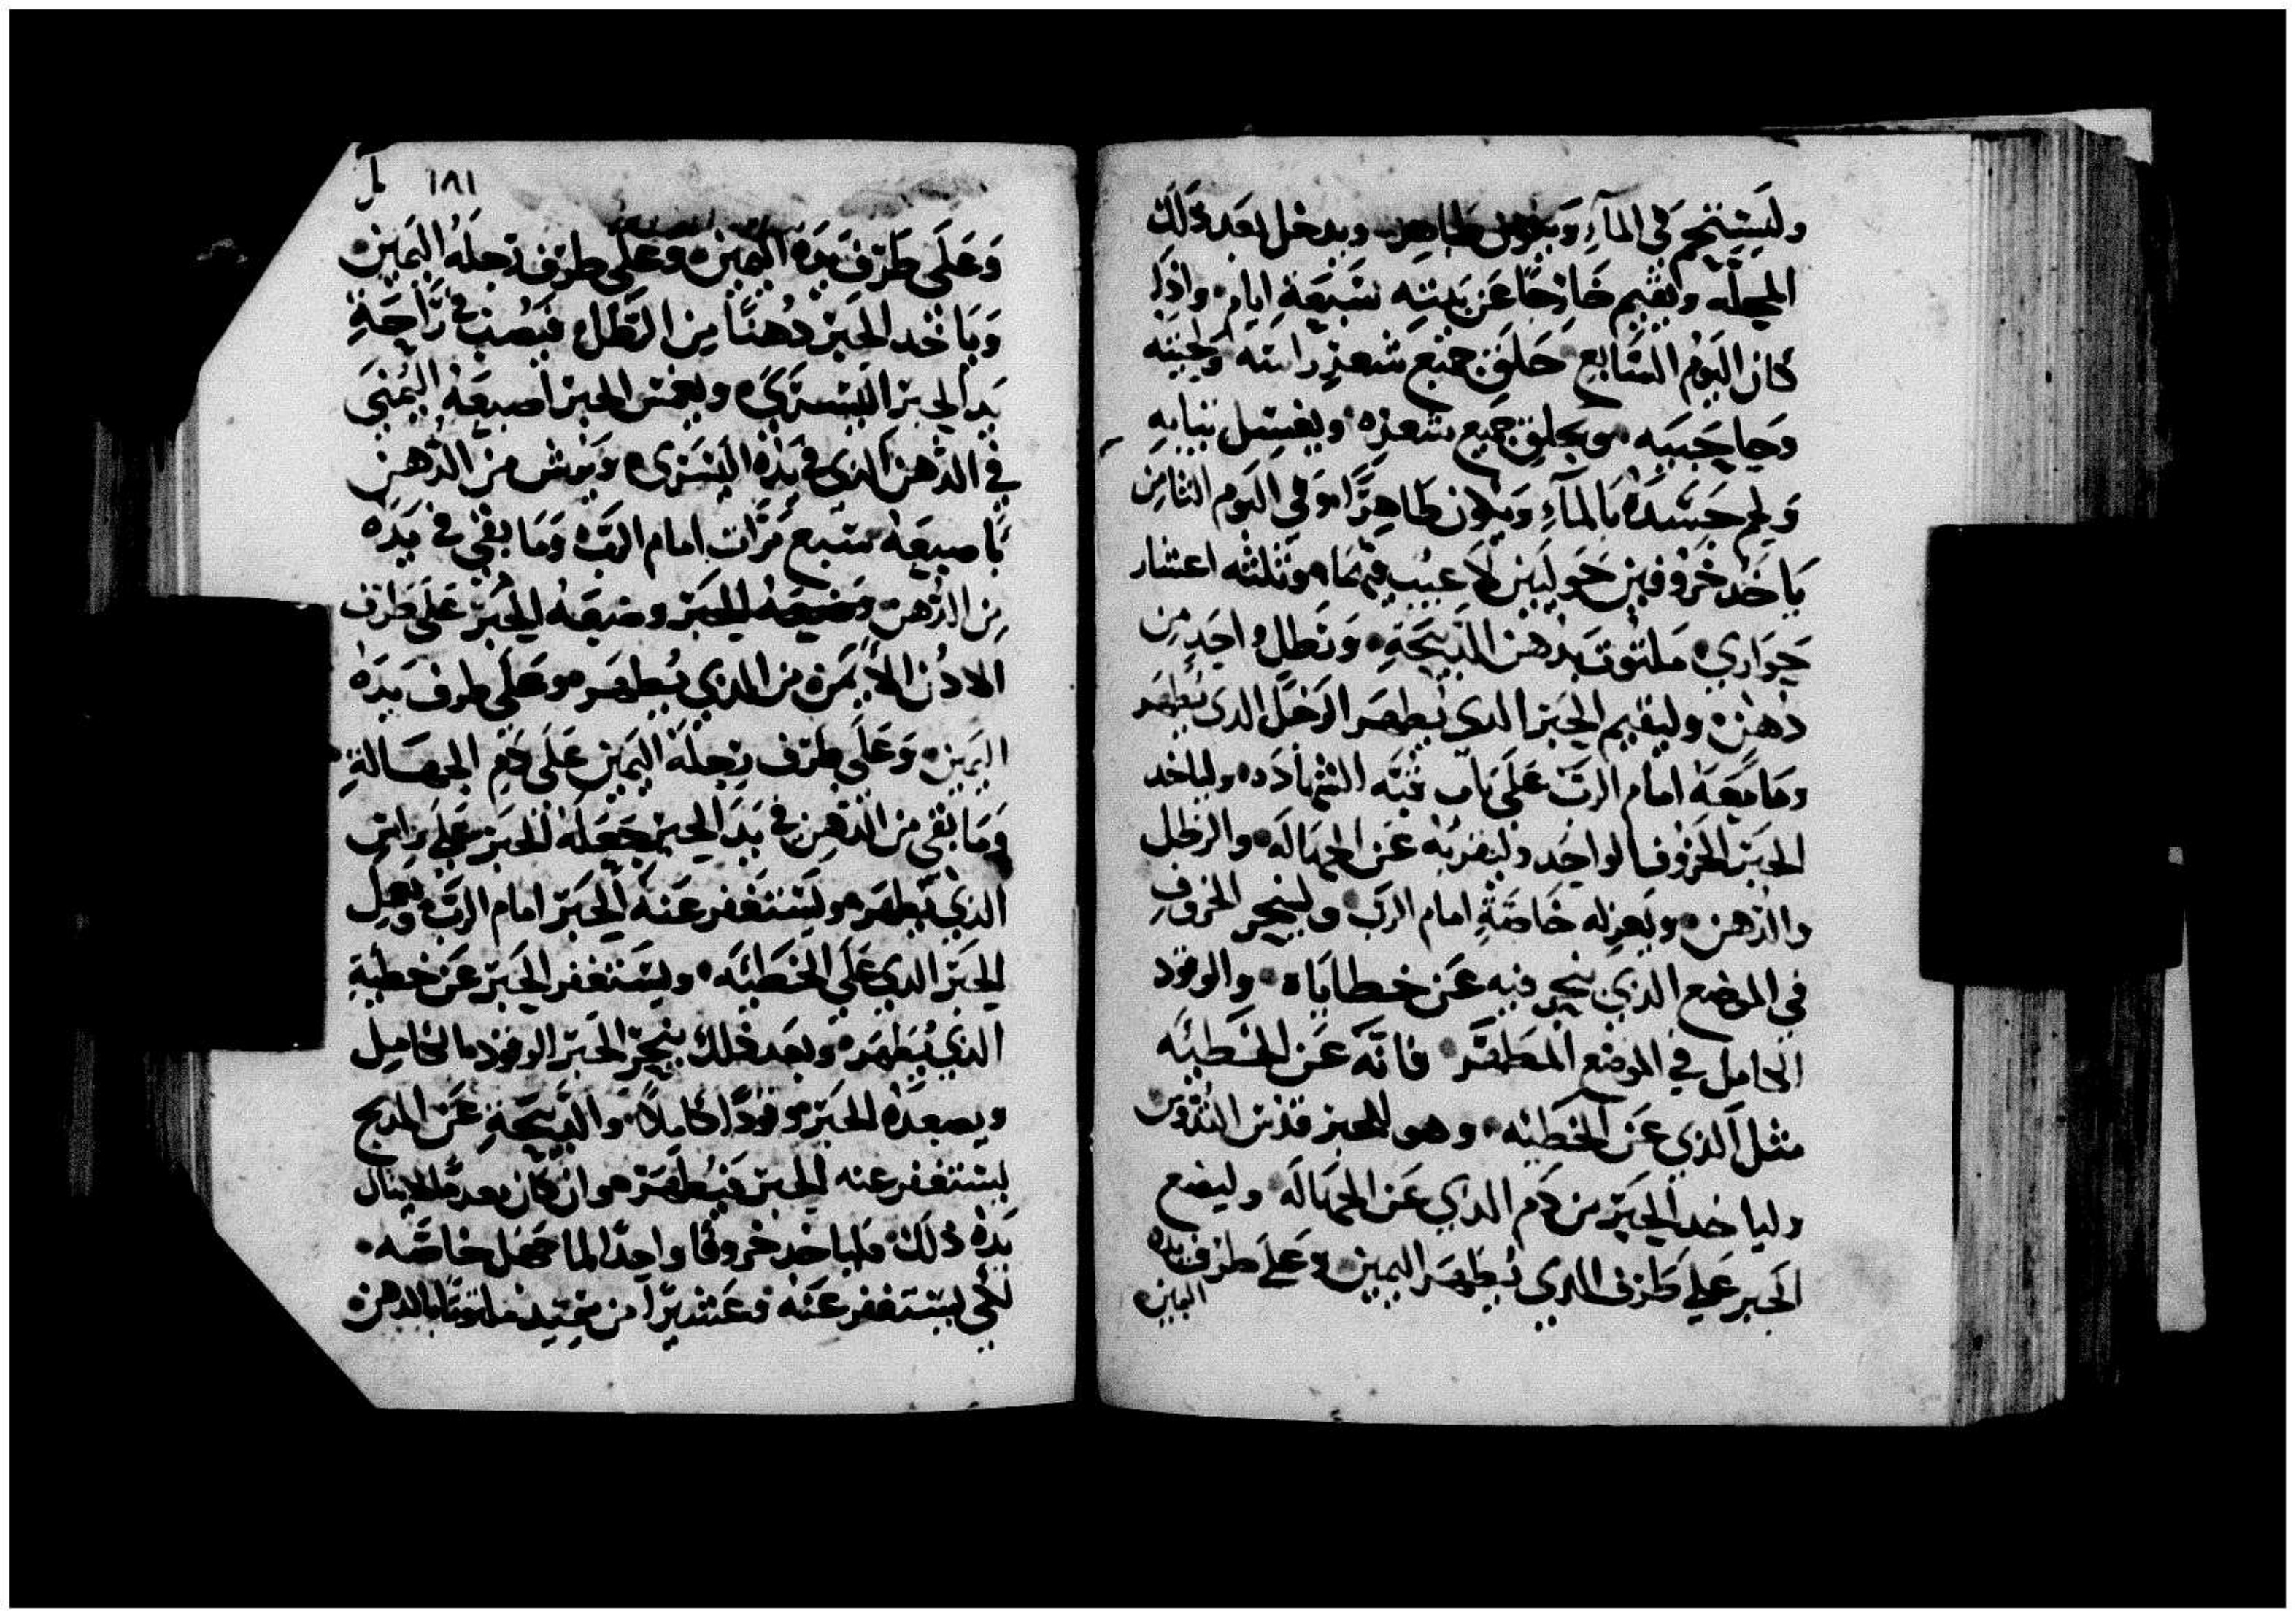 وليستحم في المآء ويكون طاهر ويدخل بعد ذلك
المحله وايقيم خارجًا عن بيته سبعة ايام واذا
كان اليوم السابع حلق جميع شعر راسه ولحيته
وحاجبيه ويحلق جميع شعره ويغسل ثيابه
ويحم جسده بالمآء ويكون طاهرًا وفي اليوم الثامن
ياخد خروفين حوليين لا عيب فيهما وثلثه اعشار
حواري ملتوت بدهن الدبيحة ورطل واحد من
دهن وليقيم الحبر الدي يطهر الرجل الدي يطهر
وما معه امام الرب على باب قبه الشهاده ولياخد
الحبر الخروف الواحد وليقربه عن الجهاله والرطل
والدهن ويعزله خاصة امام الرب ولينحر الخروف
في الموضع الدي ينحر فيه عن خطاياه والوقود
الكامل في الموضع المطهر فانه عن الخطيئه
مثل الدي عن الخطيئه وهو للحبر قدس القدوس
ولياخد الحبر من دم الدي عن الجهاله وليضع
الحبر على طرف الدي يطهر اليمين وعلى طرف يده
اليمين
١٨١
وعلى طرف يده اليمين وعلى طرف رجله اليمين
وياخد الحبر دهنًا من الرطل فيصب في راحة
يد الحبر اليسرى ويغمس الحبر اصبعه اليمنى
في الدهن الدي في يده اليسرى ويرش من الدهن
باصبعه سبع مرات امام الرب وما بقي في يده
من الدهن وضعه الحبر وضعه الحبر على طرف
الادن الايمن من الدي يطهر وعلى طرف يده
اليمين وعلى طرف رجله اليمين على دم الجهالة
وما بقي من الدهن في يد الحبر جعله الحبر على راس
الدي يطهر وليستغفر عنه الحبر امام الرب ويعمل
الحبر الدي على الخطيئه ويستغفر الحبر عن خطية
الدي يطهر وبعد دلك ينحر الحبر الوقود الكامل
ويصعده الحبر وقودًا كاملا والدبيحة عن المدبح
ليستغفر عنه الحبر فيطهر وان كان معدمًا لا ينال
يده ذلك فلياخد خروفًا واحدًا لما جهل خاصه
لكي ليستغفر عنه وعشيرًا من سميد ملتوتًا بالدهن